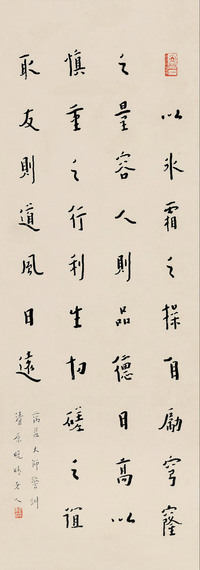 以冰霜之操自勵穹窿
之量容人則品德日高以
慎重之行利生切磋之誼
取友則道風日遠
蕅益大師警訓
晚晴老人